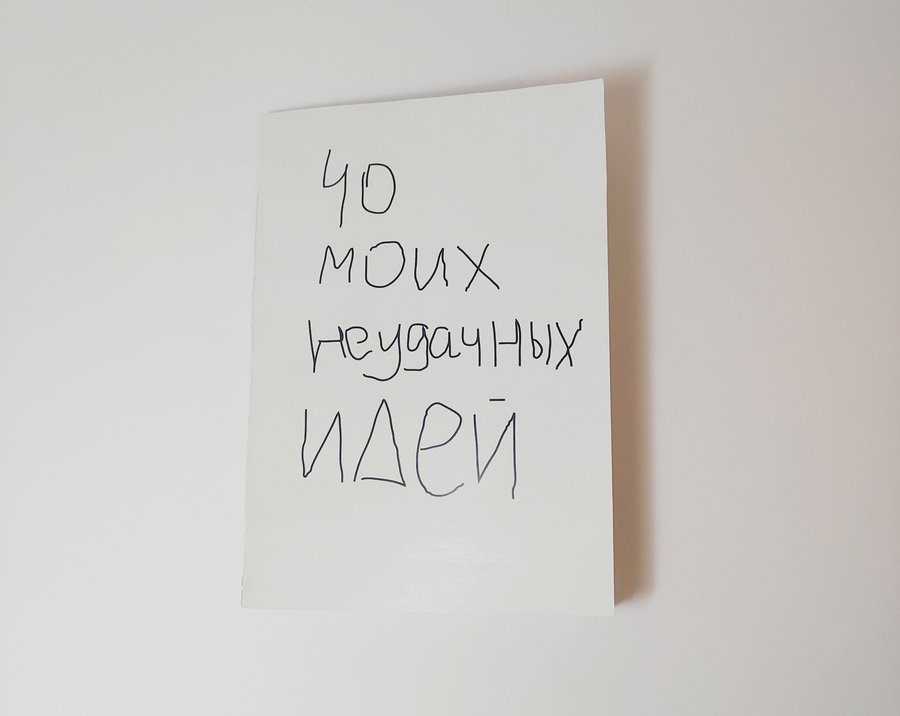 40
моих
неудачных
идей